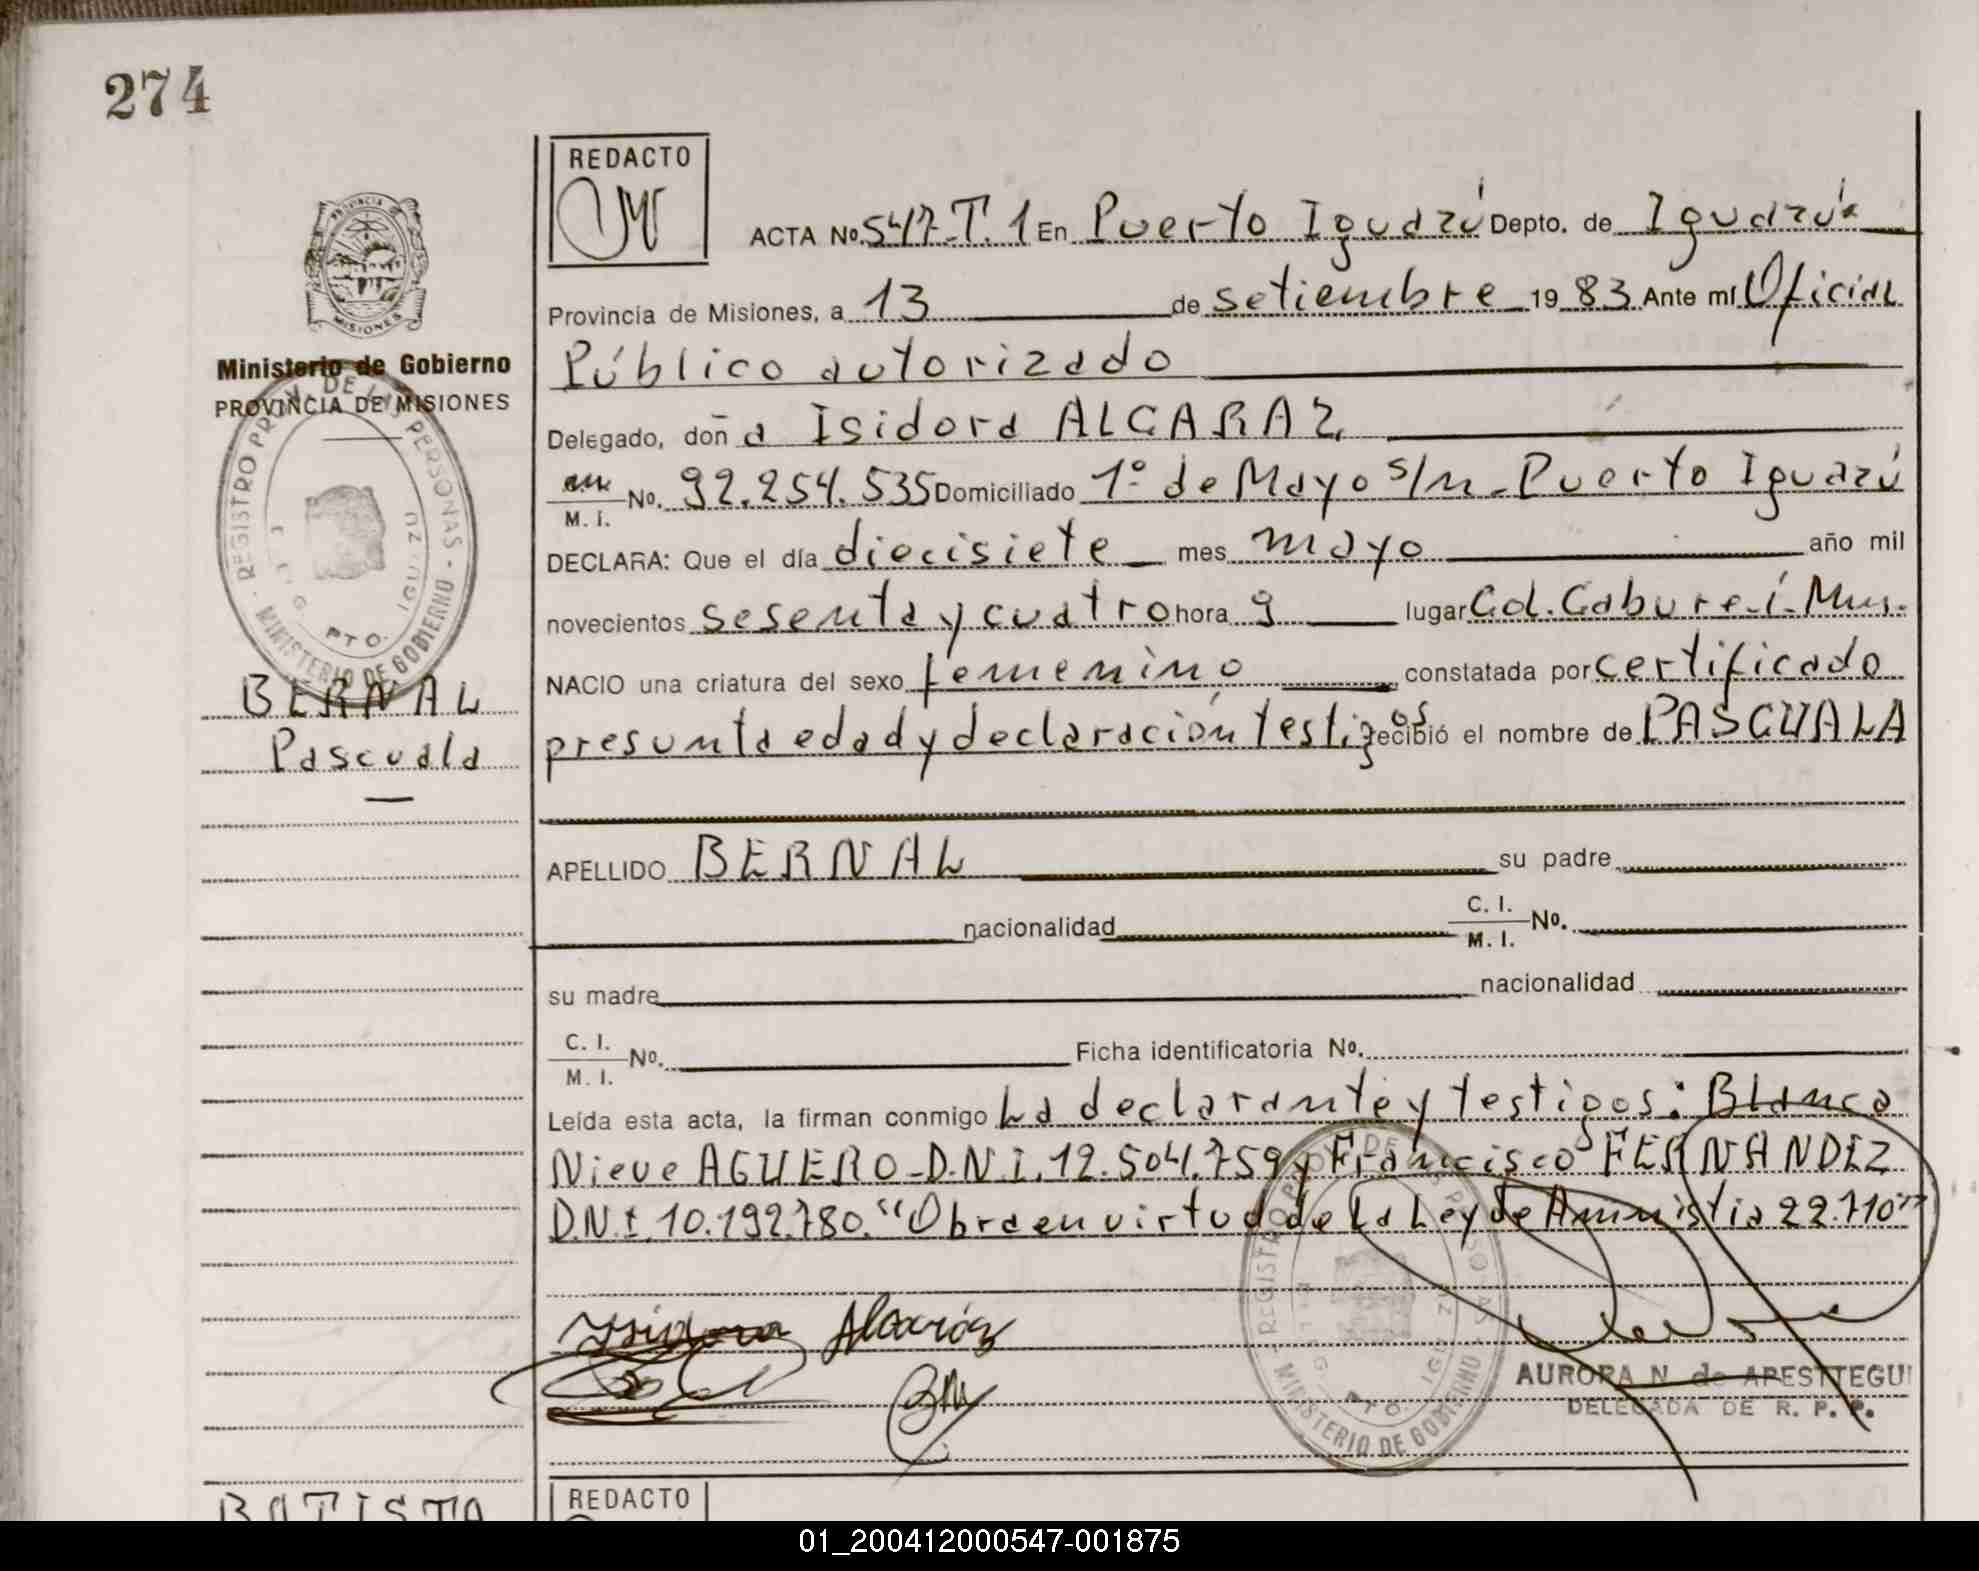 274
REDACTO
ACTA No. 547-T.1 En Puerto Iguazú Depto. de Iguazú
Provincia de Misiones, a 13 de setiembre 1983. Ante mí Oficial
Público autorizado
Delegado, doña Isidora ALCARAZ
M. I. No. 92.254.535 Domiciliado 1º de Mayo s/n - Puerto Iguazú
DECLARA: Que el día diecisiete mes mayo año mil
novecientos sesenta y cuatro hora 9 lugar Col. Cabure-í. Mnes.
NACIO una criatura del sexo femenino constatada por certificado
presunta edad y declaración testigos recibió el nombre de PASCUALA
APELLIDO BERNAL su padre
nacionalidad C. I. M. I. No.
su madre nacionalidad
C. I. M. I. No. Ficha identificatoria No.
Leída esta acta, la firman conmigo La declarante y testigos: Blanca
Nieve AGUERO - D.N.I. 12.504.759 y Francisco FERNANDEZ
D.N.I. 10.192.780. "Obra en virtud de la Ley de Amnistia 22.710"
Isidora Alcaráz
AURORA N. de APESTTEGUI
DELEGADA DE R. P. P.
PROVINCIA DE MISIONES
Ministerio de Gobierno
PROVINCIA DE MISIONES
REGISTRO PROV. DE LAS PERSONAS - MINISTERIO DE GOBIERNO
PTO. IGUAZU
BERNAL
Pascuala
REGISTRO PROV. DE LAS PERSONAS - MINISTERIO DE GOBIERNO
PTO. IGUAZU
BATISTA
REDACTO
01_200412000547-001875